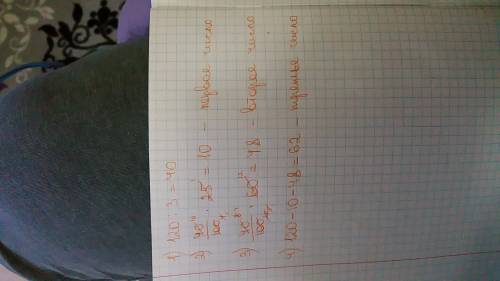 1) 120 : 3 = 40
2) 40/100 · 25 = 10 – первое число
3) 40/100 · = 48 – второе число
4) 120 – 10 – 48 = 62 – третье число